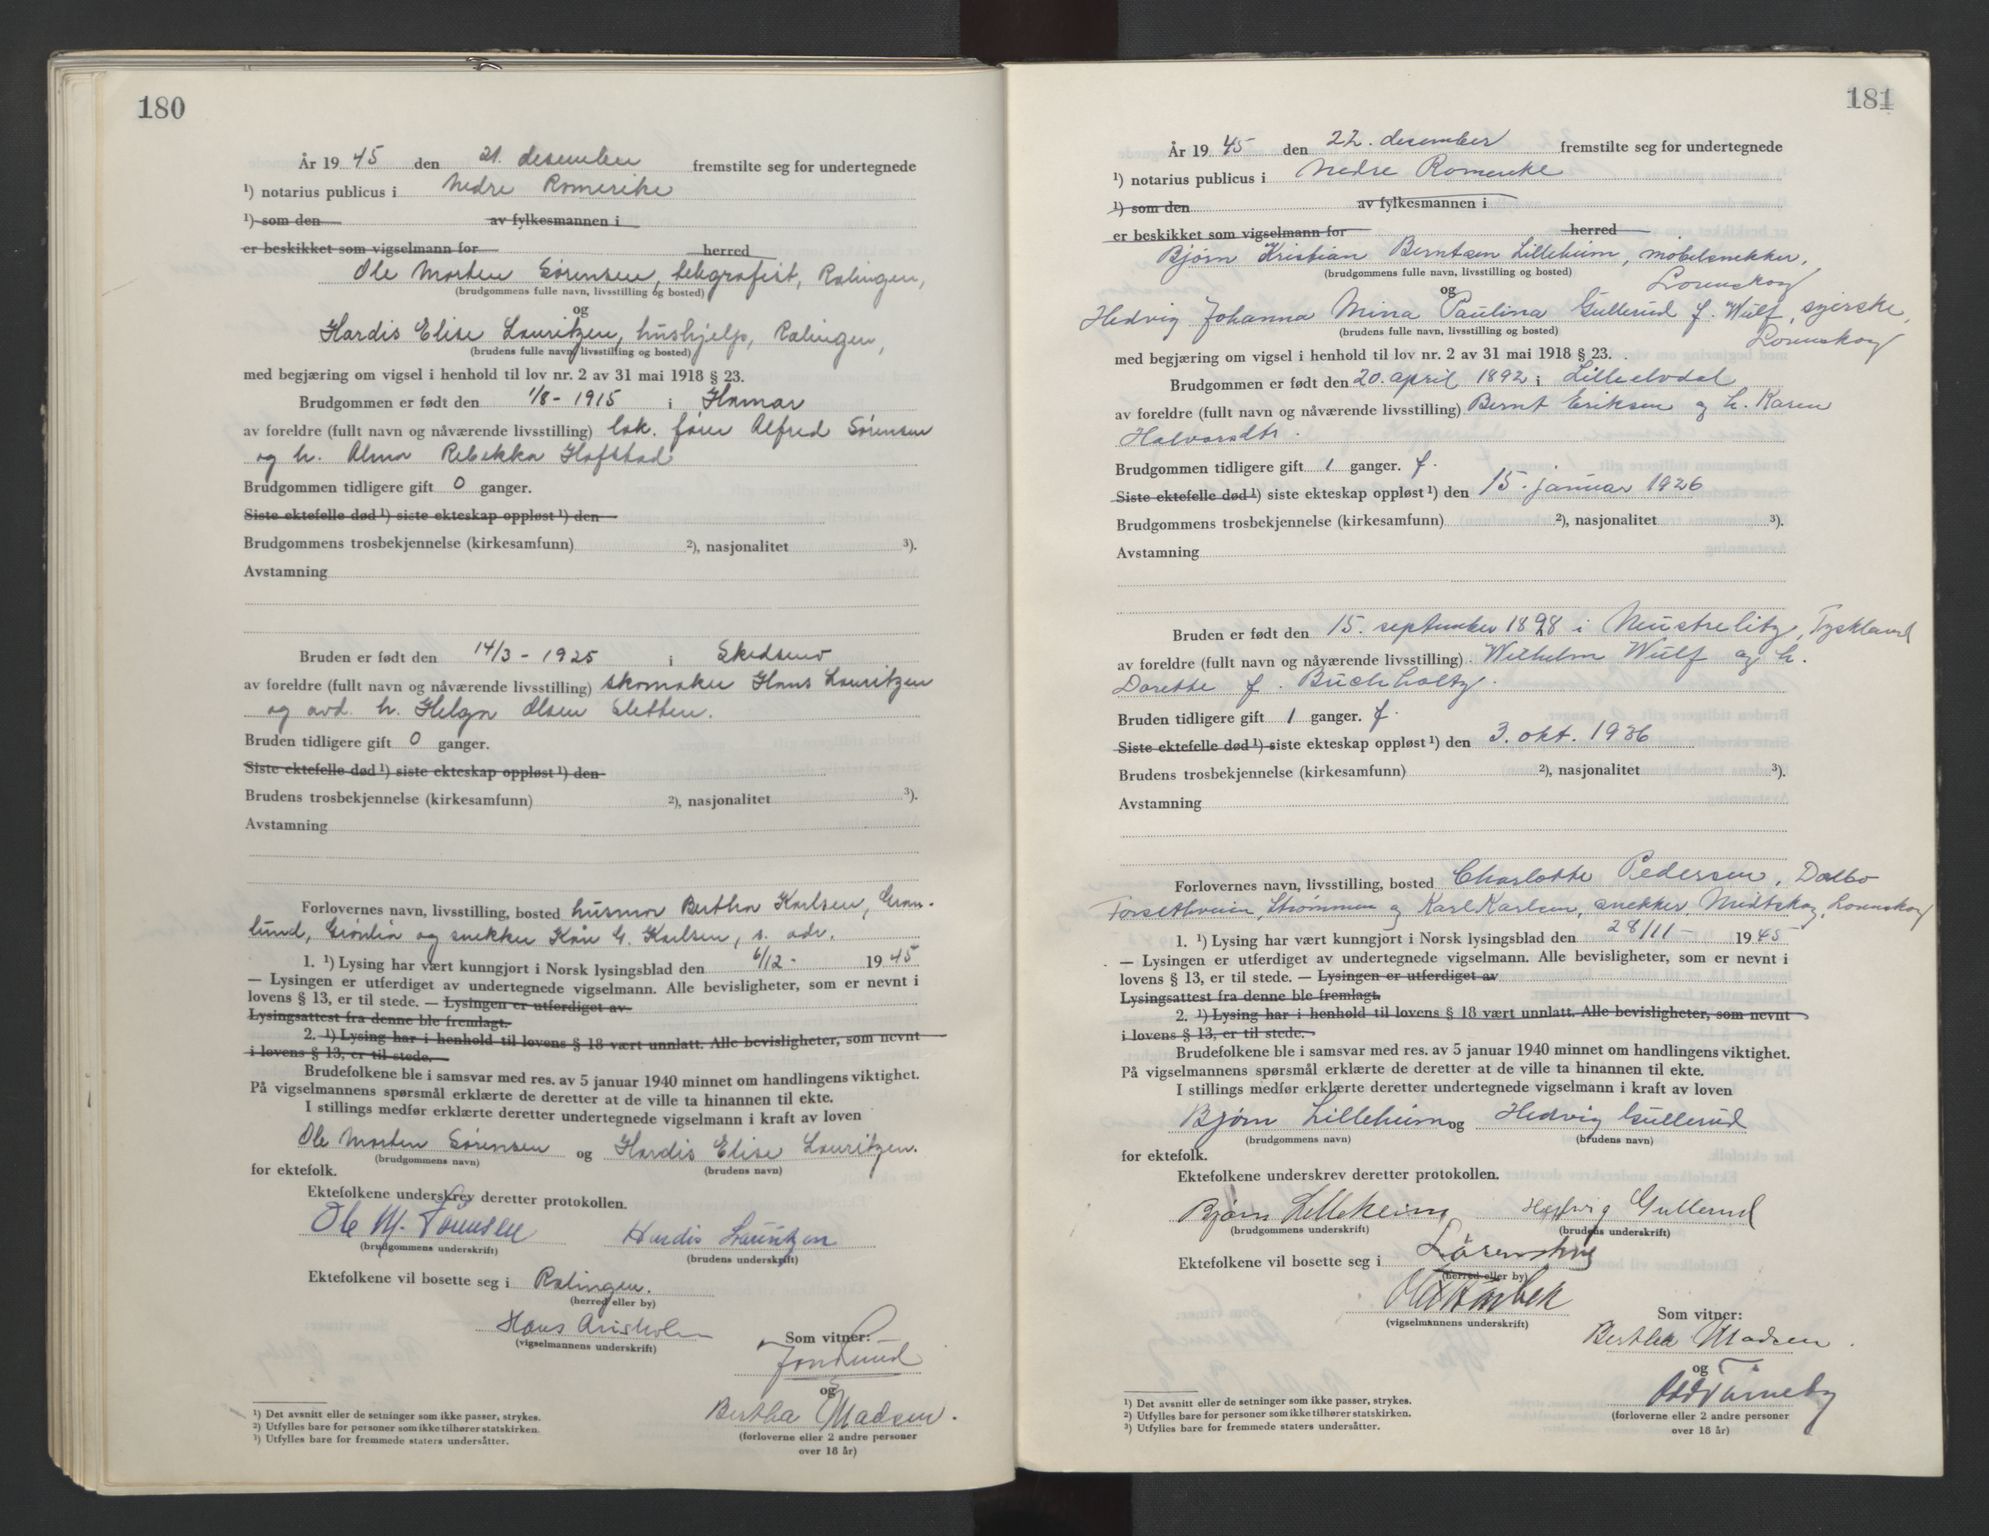 180
År 19 45 den 21. desember fremstilte seg for undertegnede
¹) notarius publicus i Nedre Romerike
¹) som den av fylkesmannen i
er beskikket som vigselmann for herred
Ole Morten Sørensen, telegrafist, Rælingen,
(brudgommens fulle navn, livsstilling og bosted)
og
Hardis Elise Lauritzen, hushjelp, Rælingen,
(brudens fulle navn, livsstilling og bosted)
med begjæring om vigsel i henhold til lov nr. 2 av 31 mai 1918 § 23.
Brudgommen er født den 1/8 - 1915 i Hamar
av foreldre (fullt navn og nåværende livsstilling) lok. fører Alfred Sørensen
og h. Alma Rebekka Hafstad
Brudgommen tidligere gift 0 ganger.
Siste ektefelle død ¹) siste ekteskap oppløst ¹) den
Brudgommens trosbekjennelse (kirkesamfunn) ²), nasjonalitet ³).
Avstamning
Bruden er født den 14/3 - 1925 i Skedsmo
av foreldre (fullt navn og nåværende livsstilling) skomaker Hans Lauritzen
og avd. h. Helga Olsen Sletten.
Bruden tidligere gift 0 ganger.
Siste ektefelle død ¹) siste ekteskap oppløst ¹) den
Brudens trosbekjennelse (kirkesamfunn) ²), nasjonalitet ³).
Avstamning
Forlovernes navn, livsstilling, bosted husmor Bertha Karlsen, Gran-
lund, og snekker G. Karlsen, s. adr.
1. ¹) Lysing har vært kunngjort i Norsk lysingsblad den 6/12 - 19 45
— Lysingen er utferdiget av undertegnede vigselmann. Alle bevisligheter, som er nevnt i
lovens § 13, er til stede. — Lysingen er utferdiget av
Lysingsattest fra denne ble fremlagt.
2. ¹) Lysing har i henhold til lovens § 18 vært unnlatt. Alle bevisligheter, som nevnt
i lovens § 13, er til stede.
Brudefolkene ble i samsvar med res. av 5 januar 1940 minnet om handlingens viktighet.
På vigselmannens spørsmål erklærte de deretter at de ville ta hinannen til ekte.
I stillings medfør erklærte deretter undertegnede vigselmann i kraft av loven
Ole Morten Sørensen og Hardis Elise Lauritzen.
(brudgommens navn) (brudens navn)
for ektefolk.
Ektefolkene underskrev deretter protokollen.
Ole M. Sørensen Hardis Lauritzen
(brudgommens underskrift) (brudens underskrift)
Ektefolkene vil bosette seg i Rælingen.
(herred eller by)
Hans
(vigselmannens underskrift)
Som vitner:
Jon Lund
og
Bertha Madsen.
(forloverne eller 2 andre personer
over 18 år)
¹) Det avsnitt eller de setninger som ikke passer, strykes.
²) Utfylles bare for personer som ikke tilhører statskirken.
³) Utfylles bare for fremmede staters undersåtter.
181
År 19 45 den 22. desember fremstilte seg for undertegnede
¹) notarius publicus i Nedre Romerike
¹) som den av fylkesmannen i
er beskikket som vigselmann for herred
Bjørn Kristian Berntsen Lilleheim, møbelsnekker,
(brudgommens fulle navn, livsstilling og bosted)
Lørenskog
og
Hedvig Johanna Mina Paulina Gullerud f. Wulf, syerske,
(brudens fulle navn, livsstilling og bosted)
Lørenskog
med begjæring om vigsel i henhold til lov nr. 2 av 31 mai 1918 § 23.
Brudgommen er født den 20. april 1892 i Lilleelvdal
av foreldre (fullt navn og nåværende livsstilling) Bernt Eriksen og h. Karen
Halvorsdtr.
Brudgommen tidligere gift 1 ganger. f.
Siste ektefelle død ¹) siste ekteskap oppløst ¹) den 15. januar 1926
Brudgommens trosbekjennelse (kirkesamfunn) ²), nasjonalitet ³).
Avstamning
Bruden er født den 15. september 1898 i Neustrelitz, Tyskland
av foreldre (fullt navn og nåværende livsstilling) Wilhelm Wulf og h.
Dorette f. Buchholtz.
Bruden tidligere gift 1 ganger. f.
Siste ektefelle død ¹) siste ekteskap oppløst ¹) den 3. okt. 1936
Brudens trosbekjennelse (kirkesamfunn) ²), nasjonalitet ³).
Avstamning
Forlovernes navn, livsstilling, bosted Charlotte Pedersen, Dalbo
Strømmen og Karl Karlsen, snekker, Lørenskog
1. ¹) Lysing har vært kunngjort i Norsk lysingsblad den 28/11 - 19 45
— Lysingen er utferdiget av undertegnede vigselmann. Alle bevisligheter, som er nevnt i
lovens § 13, er til stede. — Lysingen er utferdiget av
Lysingsattest fra denne ble fremlagt.
2. ¹) Lysing har i henhold til lovens § 18 vært unnlatt. Alle bevisligheter, som nevnt
i lovens § 13, er til stede.
Brudefolkene ble i samsvar med res. av 5 januar 1940 minnet om handlingens viktighet.
På vigselmannens spørsmål erklærte de deretter at de ville ta hinannen til ekte.
I stillings medfør erklærte deretter undertegnede vigselmann i kraft av loven
Bjørn Lilleheim og Hedvig Gullerud
(brudgommens navn) (brudens navn)
for ektefolk.
Ektefolkene underskrev deretter protokollen.
Bjørn Lilleheim Hedvig Gullerud
(brudgommens underskrift) (brudens underskrift)
Ektefolkene vil bosette seg i Lørenskog
(herred eller by)
(vigselmannens underskrift)
Som vitner:
Bertha Madsen.
og
(forloverne eller 2 andre personer
over 18 år)
¹) Det avsnitt eller de setninger som ikke passer, strykes.
²) Utfylles bare for personer som ikke tilhører statskirken.
³) Utfylles bare for fremmede staters undersåtter.